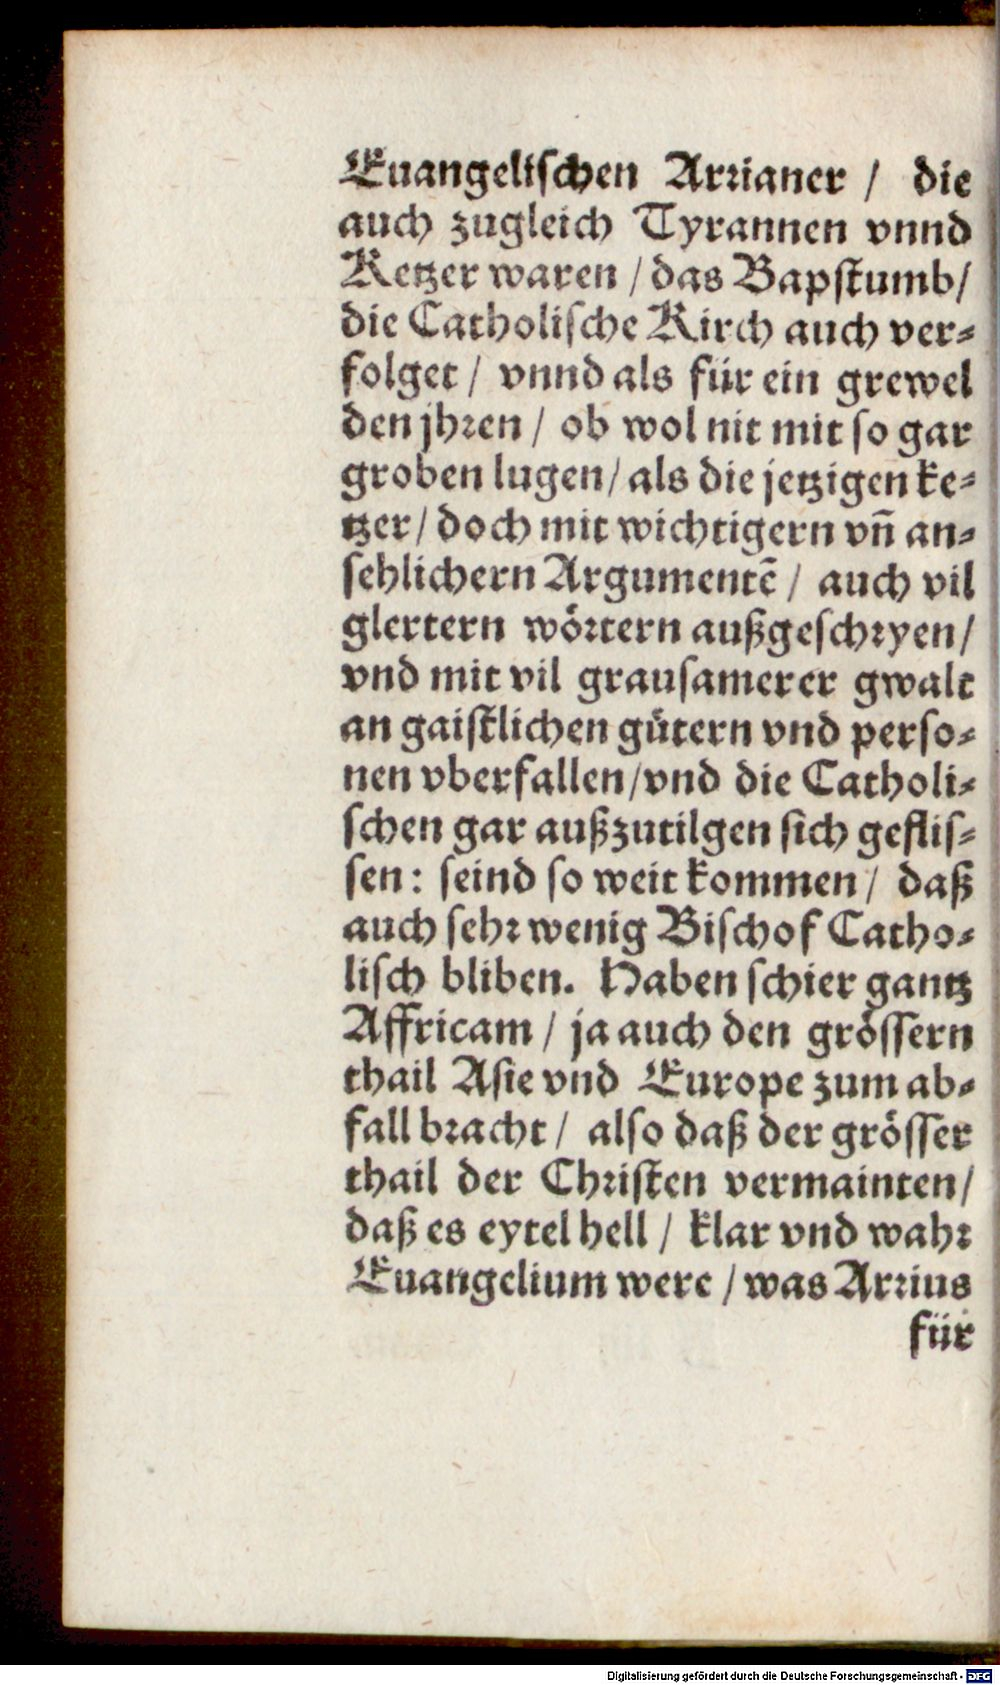 Euangelischen Arrianer / die
auch zugleich Tyrannen vnnd
Ketzer waren / das Bapstumb /
die Catholische Kirch auch ver-
folget / vnnd als für ein grewel
den jhren / ob wol nit mit so gar
groben lugen / als die jetzigen ke-
tzer / doch mit wichtigern vñ an-
sehlichern Argumentẽ / auch vil
glertern wörtern außgeschryen /
vnd mit vil grausamerer gwalt
an gaistlichen gütern vnd perso-
nen vberfallen / vnd die Catholi-
schen gar außzutilgen sich geflis-
sen: seind so weit kommen / daß
auch sehr wenig Bischof Catho-
lisch bliben. Haben schier gantz
Affricam / ja auch den grössern
thail Asie vnd Europe zum ab-
fall bracht / also daß der grösser
thail der Christen vermainten /
daß es eytel hell / klar vnd wahr
Euangelium were / was Arrius
für
Digitalisierung gefördert durch die Deutsche Forschungsgemeinschaft - DFG